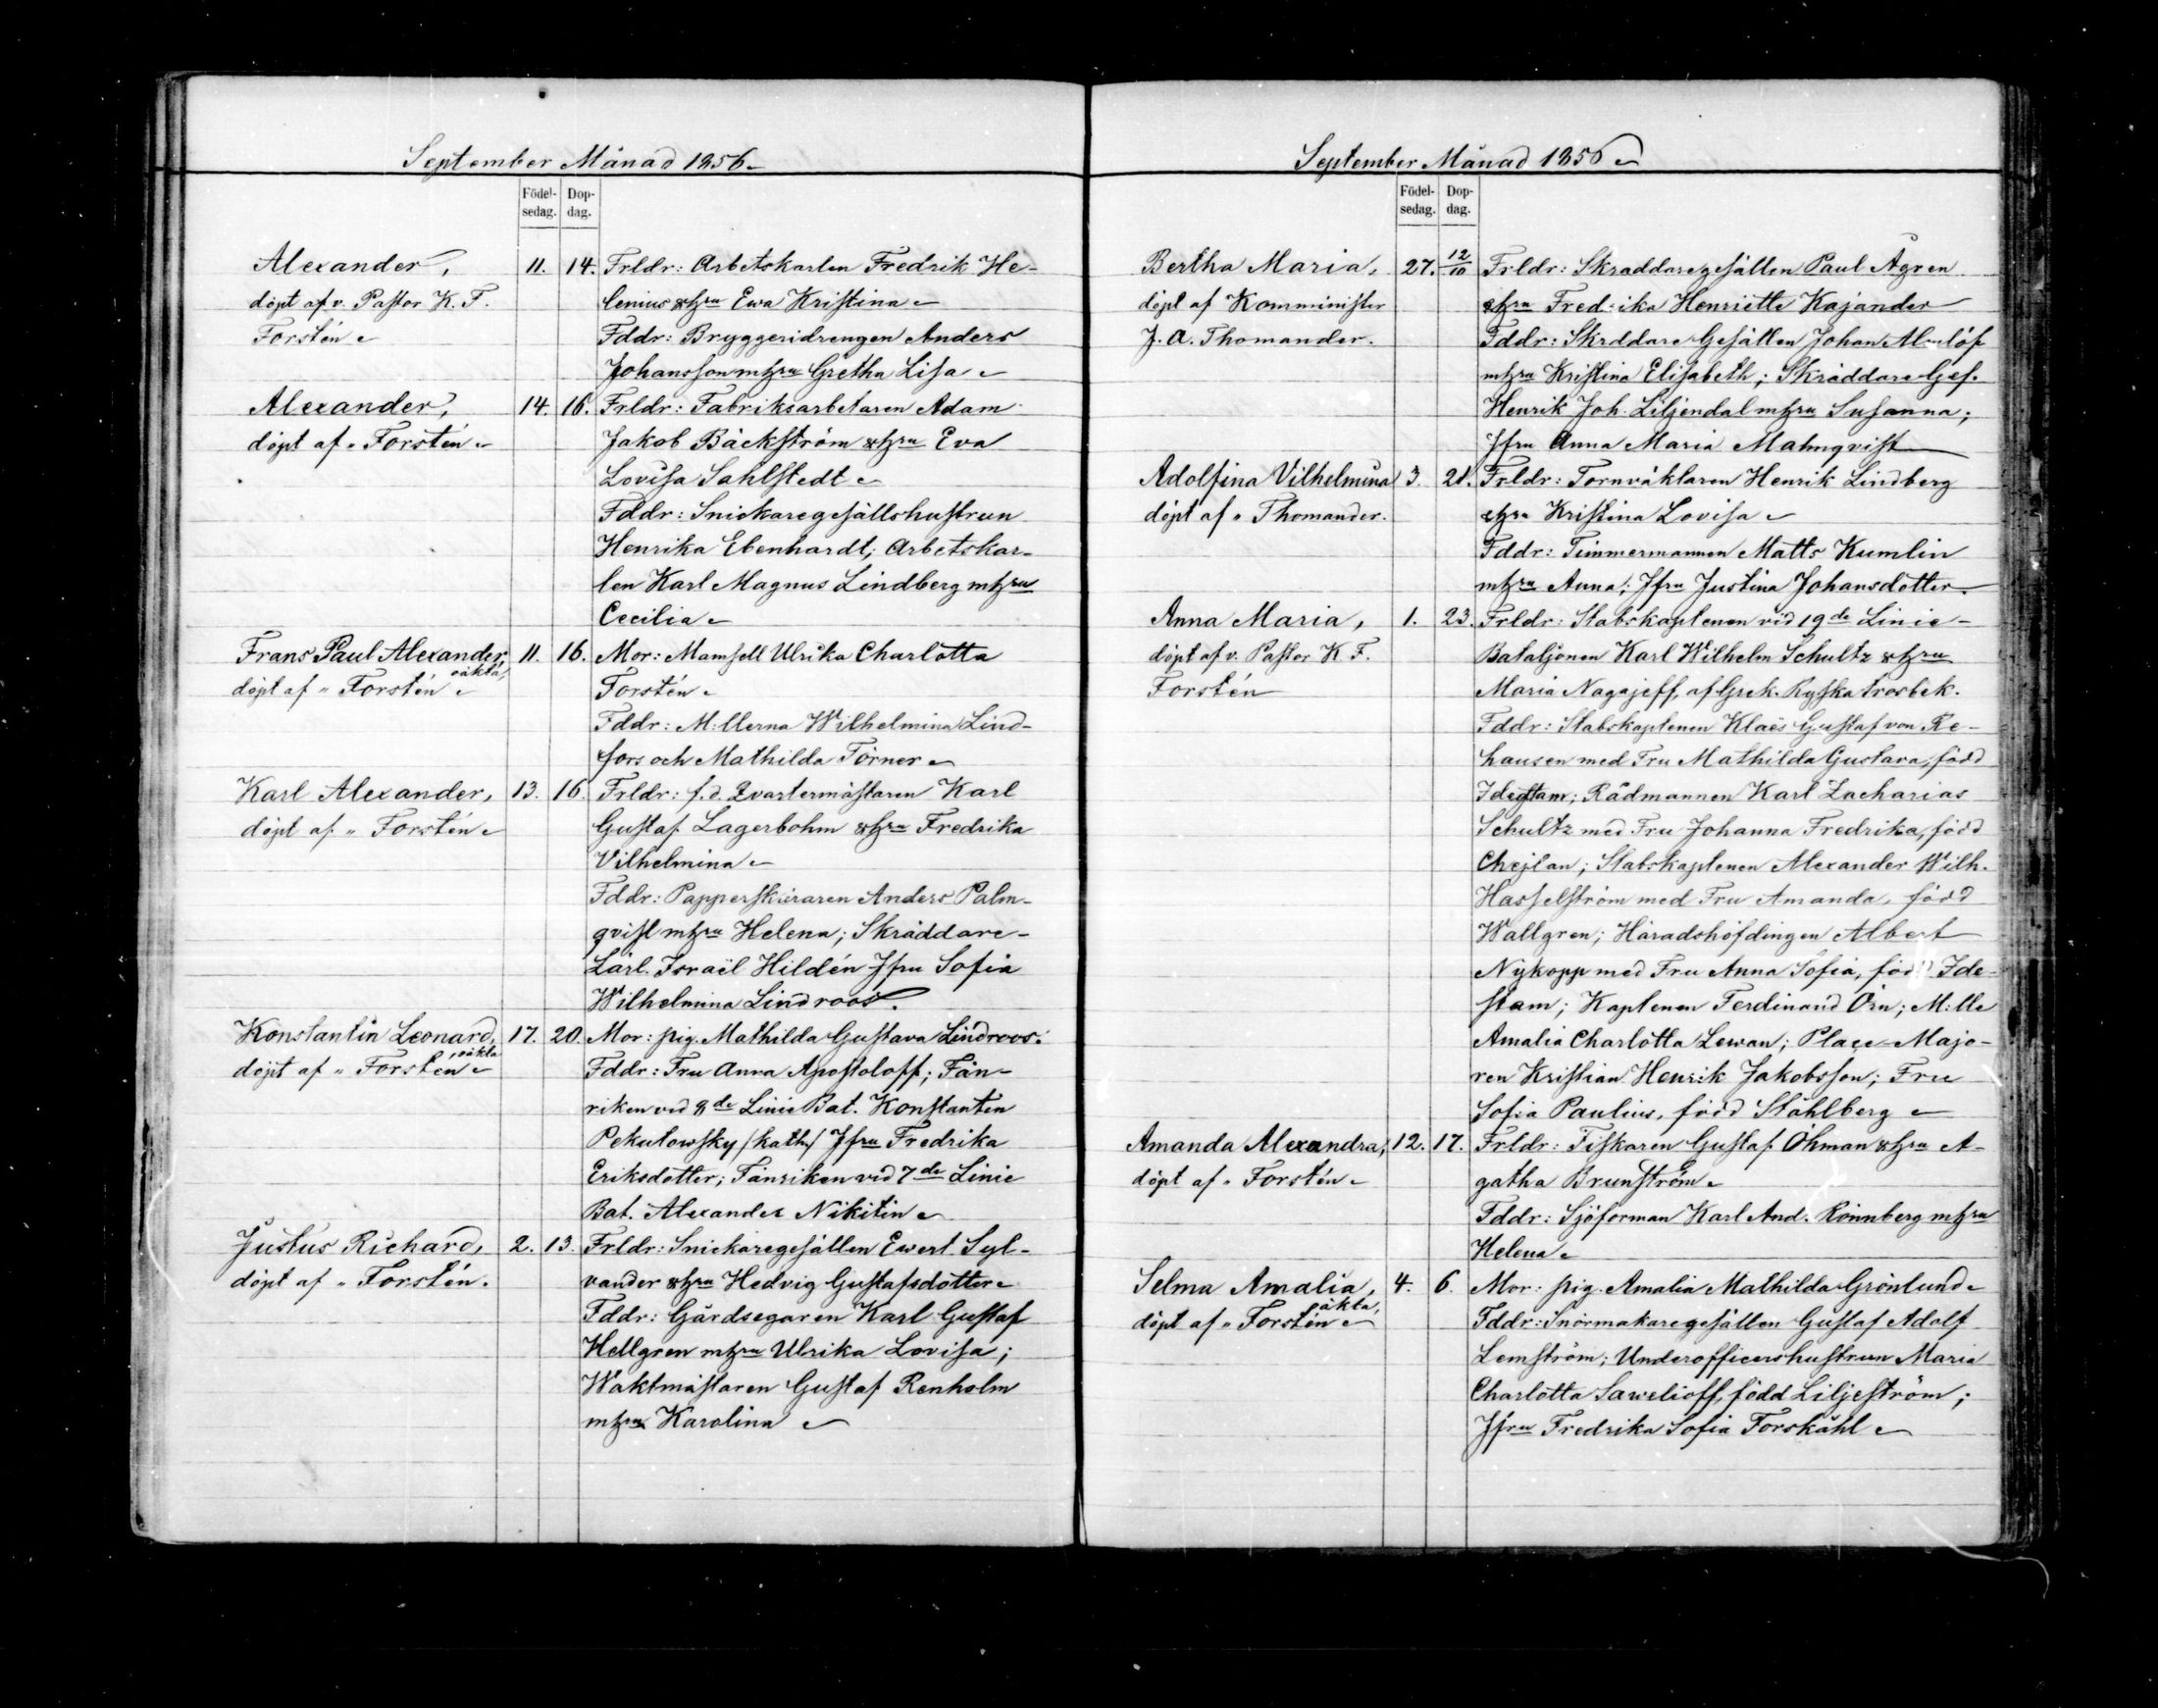 September Månad 1856
Födel-
sedag.
Dop-
dag.
Alexander,
döpt af v. Pastor K. F.
Forstén
11. 14. Frldr: Arbetskarlen Fredrik He-
lenius o hru Ewa Kristina
Fddr: Bryggeridrengen Anders
Johansson m hru Gretha Lisa
Alexander,
döpt af " Forstén
14. 16. Frldr: Fabriksarbetaren Adam
Jakob Bäckström o hru Eva
Lovisa Sahlstedt
Fddr: Snickaregesällshustrun
Henrika Ebenhardt; Arbetskar-
len Karl Magnus Lindberg m hru
Cecilia
Frans Paul Alexander, oäkta,
döpt af " Forstén
11. 16. Mor: Mamsell Ulrika Charlotta
Forstén
Fddr: M:llerna Wilhelmina Lind-
fors och Mathilda Törner
Karl Alexander,
döpt af " Forstén
13. 16. Frldr: f.d. Qvartermästaren Karl
Gustaf Lagerbohm o hru Fredrika
Vilhelmina
Fddr: Papperskäraren Anders Palm-
qvist m hru Helena; Skräddare-
Lärl. Israël Hildén Jfru Sofia
Wilhelmina Lindroos.
Konstantin Leonard, oäkta
döpt af " Forstén
17. 20. Mor: pig. Mathilda Gustava Lindroos.
Fddr: Fru Anna Apostoloff; Fän-
riken vid 8de Linie Bat. Konstanten
Pekutowsky /kath/ Jfru Fredrika
Eriksdotter; Fänriken vid 7de Linie
Bat. Alexander Nikitin
Justus Richard,
döpt af " Forstén.
2. 13. Frldr: Snickaregesällen Ewert Syl-
vander o hru Hedvig Gustafsdotter
Fddr: Gårdsegaren Karl Gustaf
Hellgren m hru Ulrika Lovisa;
Waktmästaren Gustaf Renholm
m hru Karolina
September Månad 1856
Födel-
sedag.
Dop-
dag.
Bertha Maria,
döpt af Komminister
J. A. Thomander.
27. 12/10 Frldr: Skräddaregesällen Paul Ågren
o hru Fredrika Henriette Kajander
Fddr: Skrddare Gesällen Johan Almlöf
m hru Kristina Elisabeth; Skräddare Ges.
Henrik Joh. Liljendal m hru Susanna;
Jfru Anna Maria Malmqvist
Adolfina Vilhelmina
döpt af " Thomander.
3. 21. Frldr: Tornväktaren Henrik Lindberg
o hru Kristina Lovisa
Fddr: Timmermannen Matts Kumlin
m hru Anna; Jfru Justina Johansdotter.
Anna Maria,
döpt af v. Pastor K. F.
Forstén
1. 23. Frldr: Stabskaptenen vid 19de Linie-
Bataljonen Karl Wilhelm Schultz o hru
Maria Nagajeff, af Grek. Ryska trosbek.
Fddr: Stabskaptenen Klaës Gustaf von Re-
hausen med Fru Mathilda Gustava, född
Idestam; Rådmannen Karl Zacharias
Schultz med Fru Johanna Fredrika, född
Stabskaptenen Alexander Wilh.
Hasselström med Fru Amanda, född
Wallgren; Häradshöfdingen Albert
Nykopp med Fru Anna Sofia, född Ide-
stam; Kaptenen Ferdinand Örn; M:lle
Amalia Charlotta Lewan; Place-Majo-
ren Kristian Henrik Jakobsson; Fru
Sofia Paulius, född Ståhlberg
Amanda Alexandra,
döpt af " Forstén
12. 17. Frldr: Fiskaren Gustaf Öhman o hru A-
gatha Brunström
Fddr: Sjöforman Karl And. Rönnberg m hru
Helena
Selma Amalia, oäkta,
döpt af " Forstén
4. 6. Mor: pig. Amalia Mathilda Grönlund
Fddr: Snörmakaregesällen Gustaf Adolf
Lemström; Underofficershustrun Maria
Charlotta Sawelioff, född Liljeström;
Jfru Fredrika Sofia Forskåhl